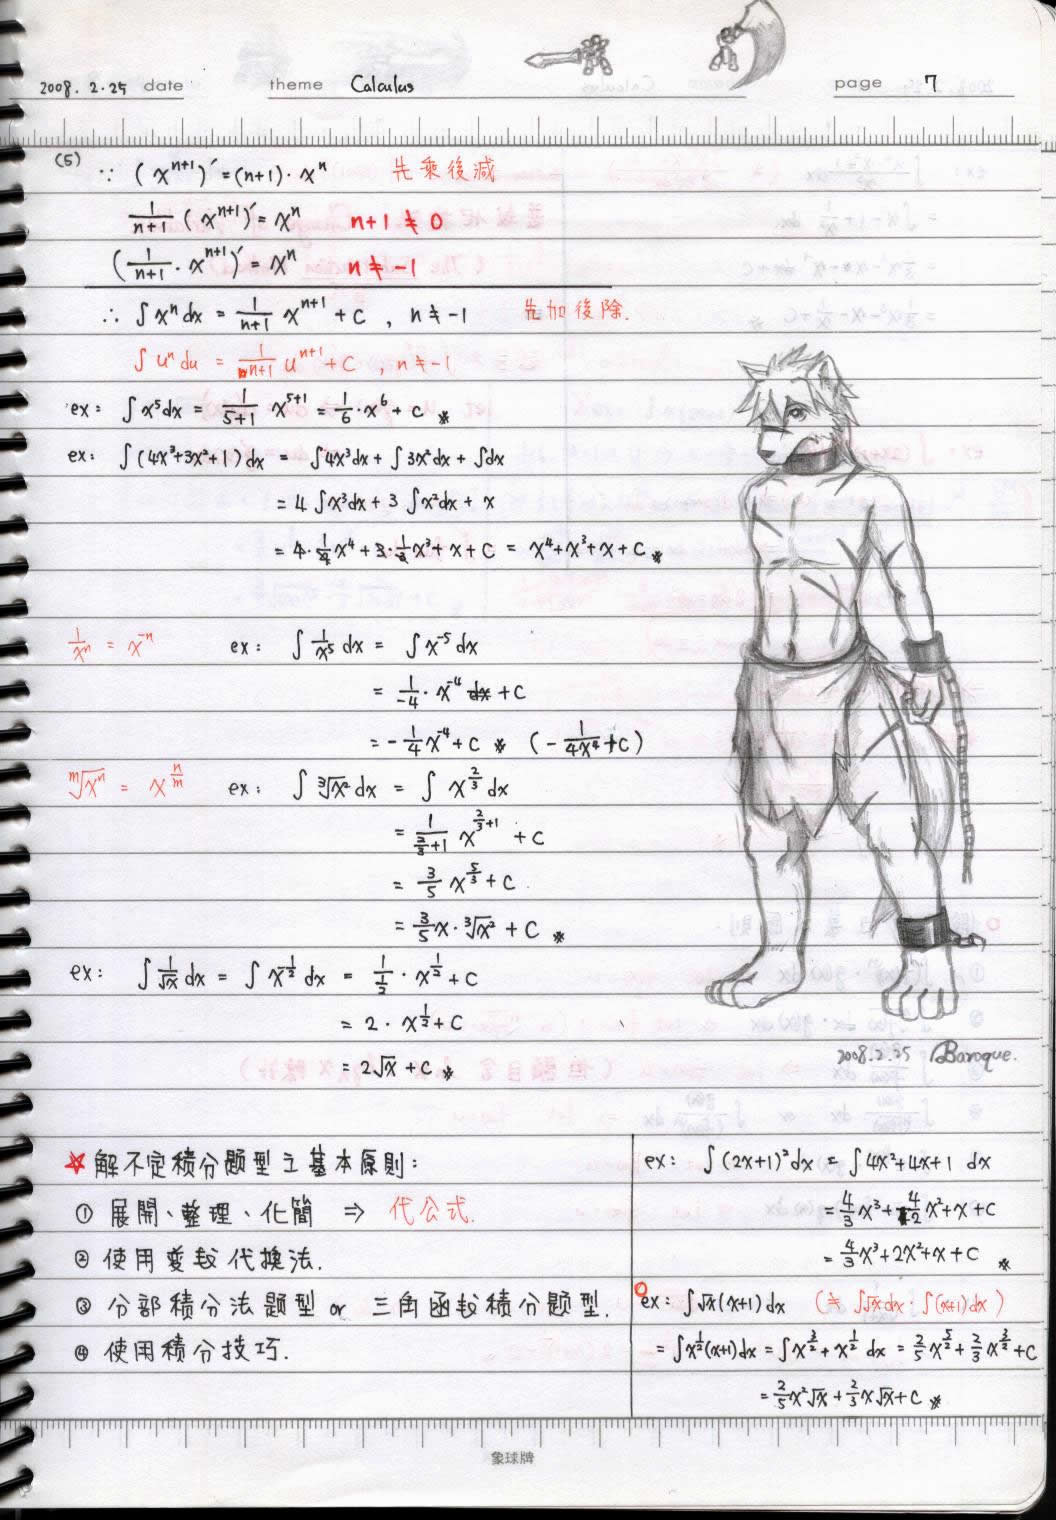 2008. 2.25 date theme Calculus page 7
(5) ∵ (x^{n+1})' = (n+1)·x^n 先乘後減
\frac{1}{n+1}(x^{n+1})' = x^n n+1 ≠ 0
(\frac{1}{n+1}·x^{n+1})' = x^n n ≠ -1
∴ ∫x^n dx = \frac{1}{n+1} x^{n+1} + C , n ≠ -1 先加後除.
∫u^n du = \frac{1}{n+1} u^{n+1} + C , n ≠ -1
ex: ∫x^5 dx = \frac{1}{5+1} x^{5+1} = \frac{1}{6}·x^6 + C ※
ex: ∫(4x^3+3x^2+1)dx = ∫4x^3dx + ∫3x^2dx + ∫dx
= 4∫x^3dx + 3∫x^2dx + x
= 4·\frac{1}{4}x^4 + 3·\frac{1}{3}x^3 + x + C = x^4+x^3+x+C ※
\frac{1}{x^n} = x^{-n} ex: ∫\frac{1}{x^5} dx = ∫x^{-5} dx
= \frac{1}{-4}·x^{-4} + C
= -\frac{1}{4}x^{-4} + C ※ (-\frac{1}{4x^4}+C)
\sqrt[m]{x^n} = x^{\frac{n}{m}} ex: ∫\sqrt[3]{x^2} dx = ∫x^{\frac{2}{3}} dx
= \frac{1}{\frac{2}{3}+1} x^{\frac{2}{3}+1} + C
= \frac{3}{5} x^{\frac{5}{3}} + C.
= \frac{3}{5}x·\sqrt[3]{x^2} + C ※
ex: ∫\frac{1}{\sqrt{x}}dx = ∫x^{-\frac{1}{2}} dx = \frac{1}{\frac{1}{2}}·x^{\frac{1}{2}} + C
= 2·x^{\frac{1}{2}} + C
= 2\sqrt{x} + C ※
2008.2.25 Baroque.
☆ 解不定積分題型之基本原則:
① 展開、整理、化簡 ⇒ 代公式.
② 使用变数代換法.
③ 分部積分法題型 or 三角函数積分題型.
④ 使用積分技巧.
ex: ∫(2x+1)^2dx = ∫4x^2+4x+1 dx
= \frac{4}{3}x^3+\frac{4}{2}x^2+x+C
= \frac{4}{3}x^3+2x^2+x+C ※
ex: ∫\sqrt{x}(x+1)dx (≠ ∫\sqrt{x}dx·∫(x+1)dx)
= ∫x^{\frac{1}{2}}(x+1)dx = ∫x^{\frac{3}{2}}+x^{\frac{1}{2}} dx = \frac{2}{5}x^{\frac{5}{2}}+\frac{2}{3}x^{\frac{3}{2}}+C
= \frac{2}{5}x^2\sqrt{x}+\frac{2}{3}x\sqrt{x}+C ※
象球牌